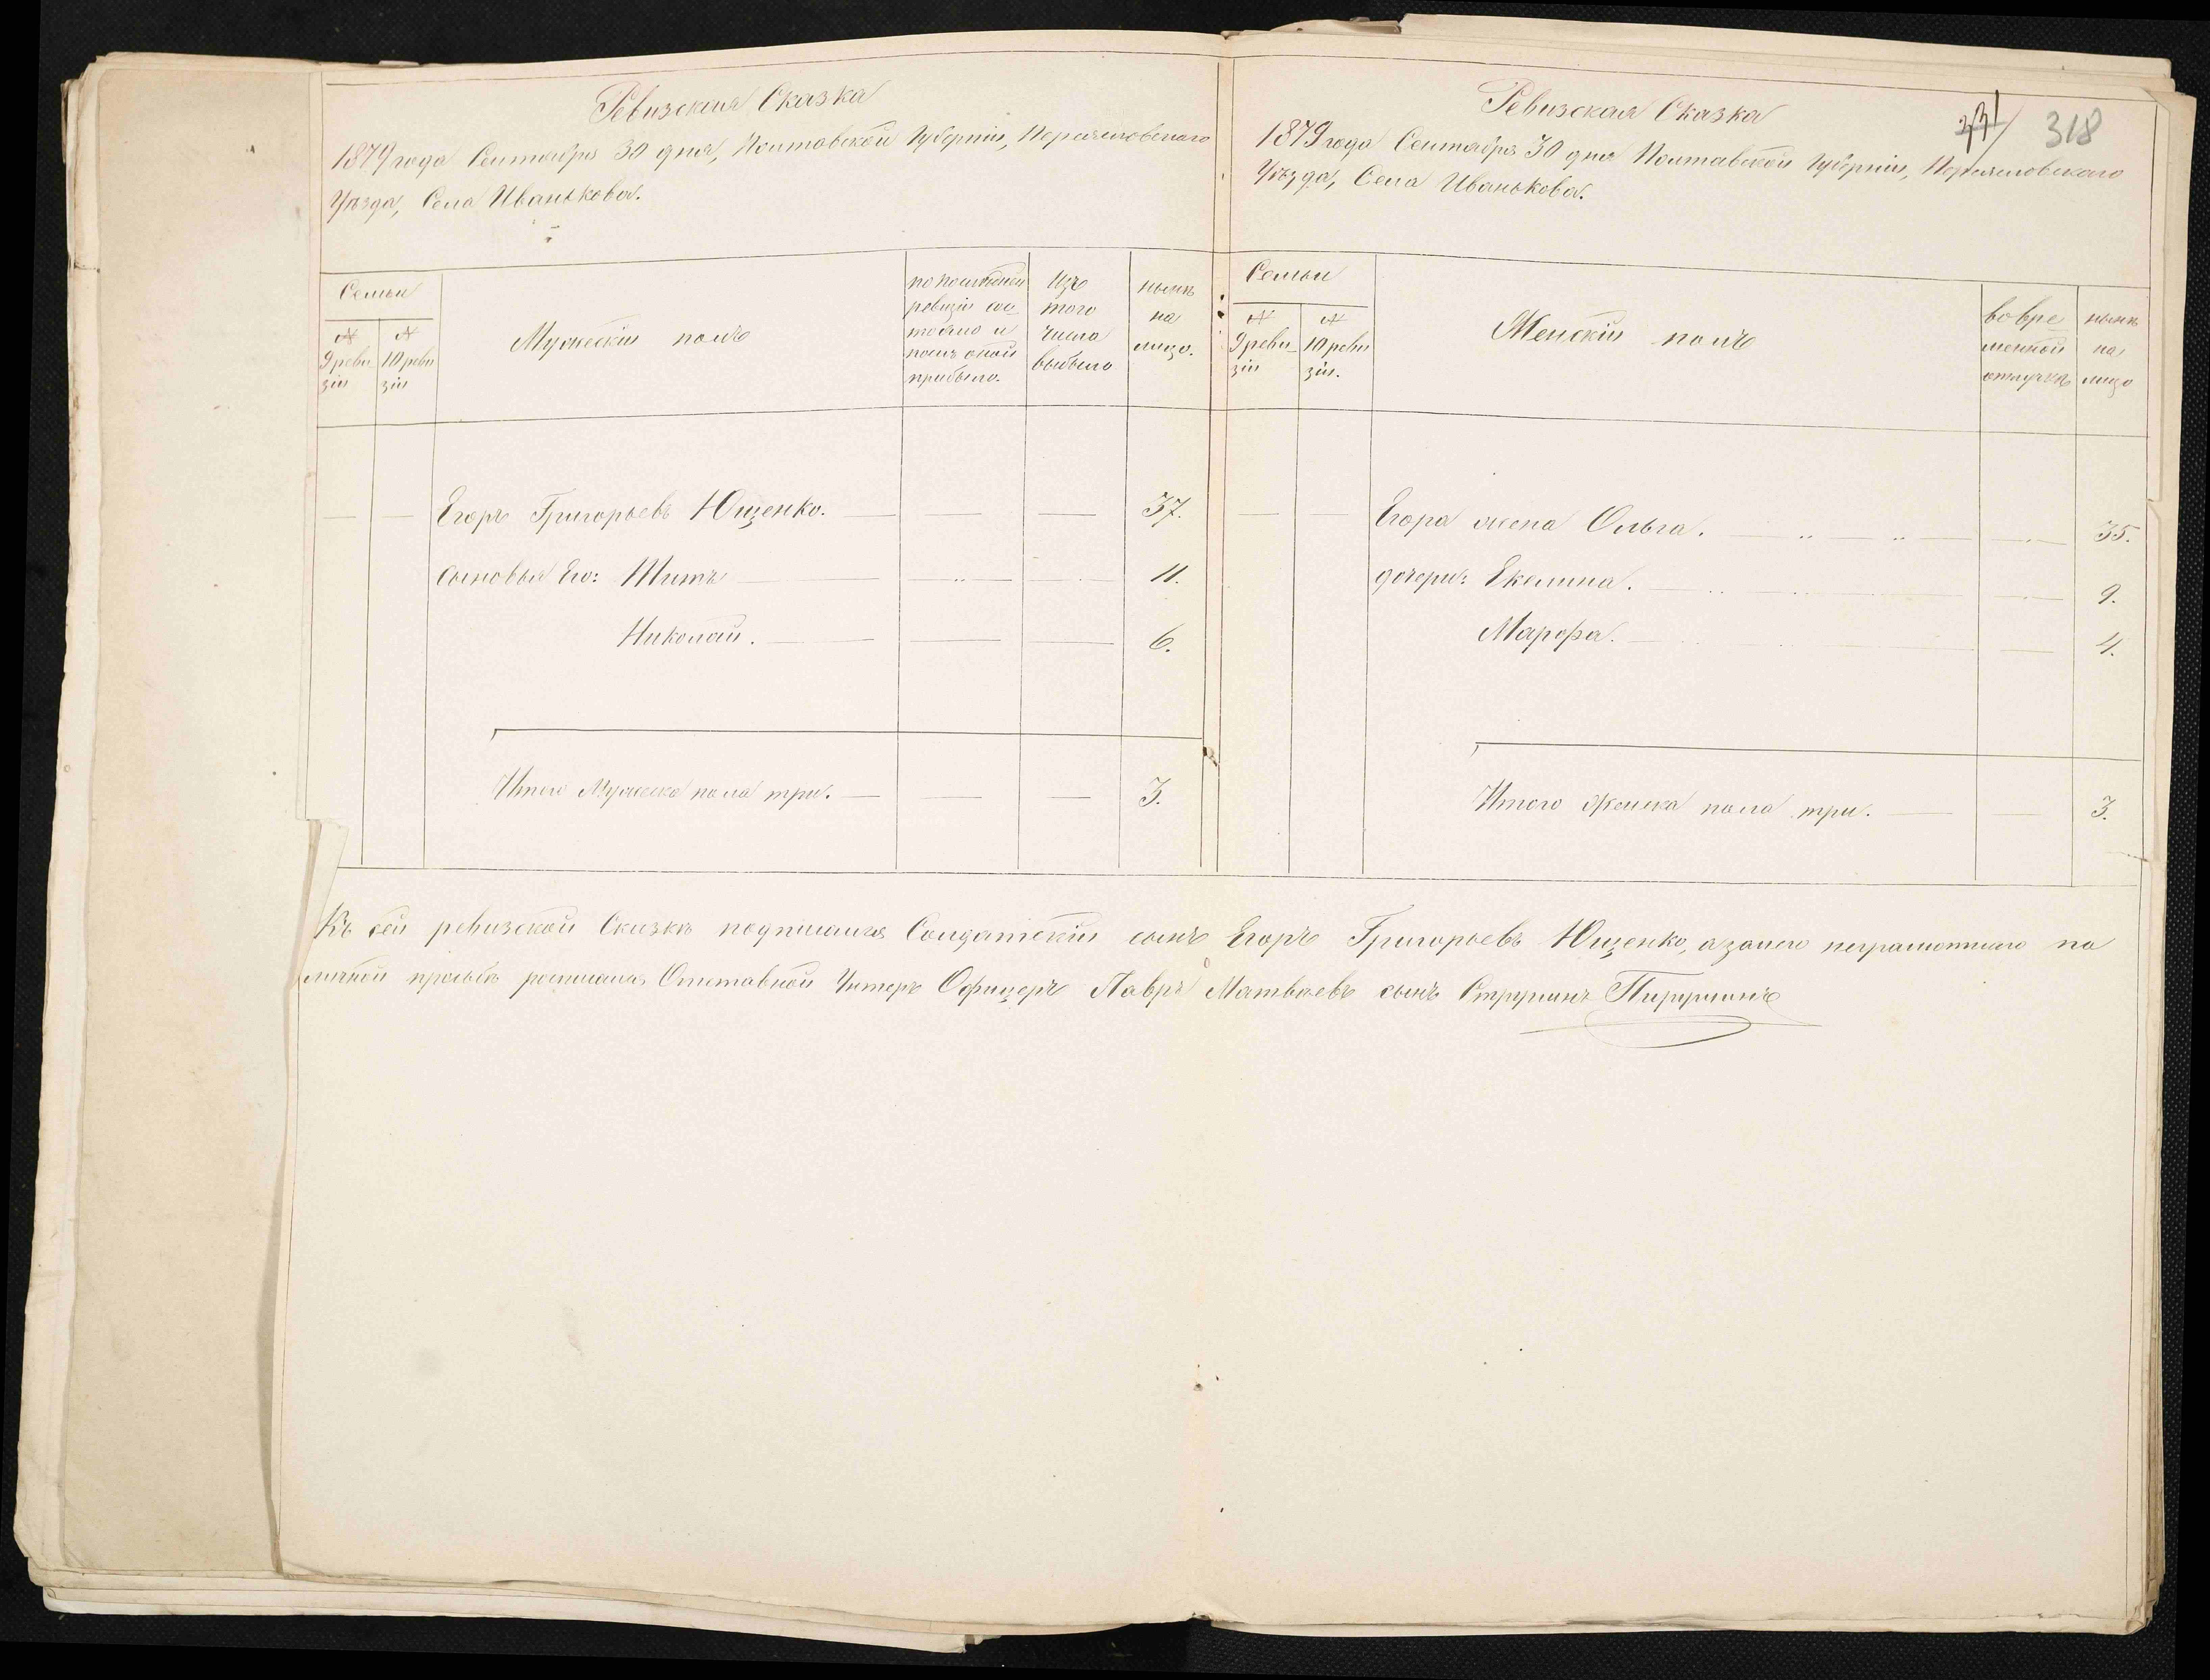 Ревизская Сказка
1879 года Сентября 30 дня, Полтавской Губерніи, Переяславскаго
Уѣзда, Села Иванькова.
Семьи
№ 9 ревизіи
№ 10 ревизіи
Мужескій полъ
по послѣдней ревизіи состояло и послѣ оной прибыло.
Изъ того числа выбыло
нынѣ на лицо.
Егоръ Григорьевъ Ющенко. 37.
сыновья Его: Титъ 11.
Николай. 6.
Итого Мужеска пола три. 3.
331 318
Ревизская Сказка
1879 года Сентября 30 дня Полтавской Губерніи, Переяславскаго
Уѣзда, Села Иванькова.
Семьи
№ 9 ревизіи
№ 10 ревизіи.
Женскій полъ
во временной отлучкѣ
нынѣ на лицо
Егора жена Ольга. 35.
дочери: Екелина. 9.
Марфа. 4.
Итого Женска пола три. 3.
Къ сей ревизской Сказкѣ подписался Солдатскій сынъ Егоръ Григорьевъ Ющенко, а за него неграмотнаго по
личной просьбѣ росписался Отставной Унтеръ Офицеръ Лавръ Матвѣевъ сынъ